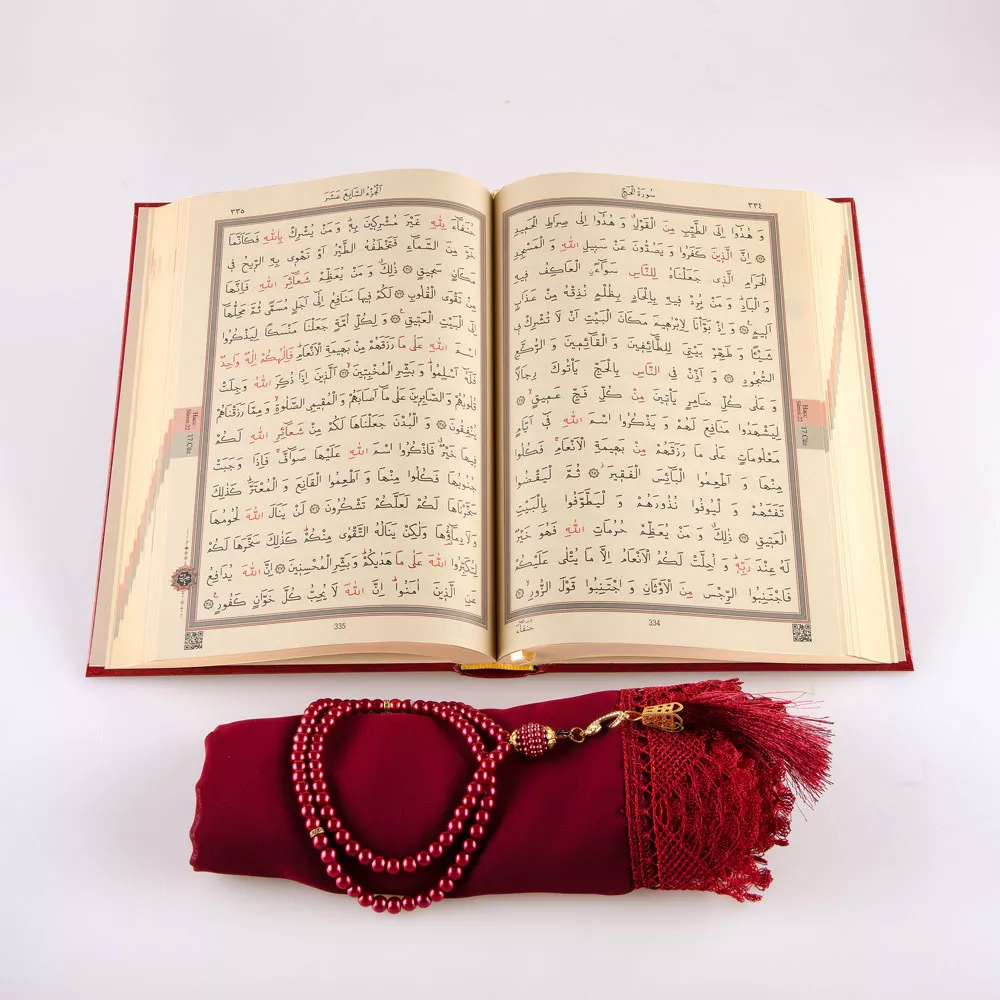 سُورَةُ الْحَجِّ
٣٣٤
وَ هُدُٓوا اِلَى الطَّيِّبِ مِنَ الْقَوْلِۚ وَ هُدُٓوا اِلٰى صِرَاطِ الْحَمٖيدِ
اِنَّ الَّذٖينَ كَفَرُوا وَ يَصُدُّونَ عَنْ سَبٖيلِ اللّٰهِ وَ الْمَسْجِدِ
الْحَرَامِ الَّذٖى جَعَلْنَاهُ لِلنَّاسِ سَوَٓاءًۨ الْعَاكِفُ فٖيهِ
وَ الْبَادِؕ وَ مَنْ يُرِدْ فٖيهِ بِاِلْحَادٍ بِظُلْمٍ نُذِقْهُ مِنْ عَذَابٍ
اَلٖيمٍ وَ اِذْ بَوَّاْنَا لِاِبْرٰهٖيمَ مَكَانَ الْبَيْتِ اَنْ لَا تُشْرِكْ بٖى
شَيْـًٔا وَ طَهِّرْ بَيْتِىَ لِلطَّٓائِفٖينَ وَ الْقَٓائِمٖينَ وَ الرُّكَّعِ
السُّجُودِ وَ اَذِّنْ فِى النَّاسِ بِالْحَجِّ يَاْتُوكَ رِجَالًا
وَ عَلٰى كُلِّ ضَامِرٍ يَاْتٖينَ مِنْ كُلِّ فَجٍّ عَمٖيقٍۙ
لِيَشْهَدُوا مَنَافِعَ لَهُمْ وَ يَذْكُرُوا اسْمَ اللّٰهِ فٖٓى اَيَّامٍ
مَعْلُومَاتٍ عَلٰى مَا رَزَقَهُمْ مِنْ بَهٖيمَةِ الْاَنْعَامِۚ فَكُلُوا
مِنْهَا وَ اَطْعِمُوا الْبَٓائِسَ الْفَقٖيرَؗ ثُمَّ لْيَقْضُوا
تَفَثَهُمْ وَ لْيُوفُوا نُذُورَهُمْ وَ لْيَطَّوَّفُوا بِالْبَيْتِ
الْعَتٖيقِ ذٰلِكَۗ وَ مَنْ يُعَظِّمْ حُرُمَاتِ اللّٰهِ فَهُوَ خَيْرٌ
لَهُ عِنْدَ رَبِّهٖؕ وَ اُحِلَّتْ لَكُمُ الْاَنْعَامُ اِلَّا مَا يُتْلٰى عَلَيْكُمْ
فَاجْتَنِبُوا الرِّجْسَ مِنَ الْاَوْثَانِ وَ اجْتَنِبُوا قَوْلَ الزُّورِۙ
334
Hacc
Sûresi 22
17.Cüz
اَلْجُزْءُ السَّابِعَ عَشَرَ
٣٣٥
حُنَفَٓاءَ لِلّٰهِ غَيْرَ مُشْرِكٖينَ بِهٖؕ وَ مَنْ يُشْرِكْ بِاللّٰهِ فَكَاَنَّمَا
خَرَّ مِنَ السَّمَٓاءِ فَتَخْطَفُهُ الطَّيْرُ اَوْ تَهْوٖى بِهِ الرّٖيحُ فٖى
مَكَانٍ سَحٖيقٍ ذٰلِكَۗ وَ مَنْ يُعَظِّمْ شَعَٓائِرَ اللّٰهِ فَاِنَّهَا
مِنْ تَقْوَى الْقُلُوبِ لَكُمْ فٖيهَا مَنَافِعُ اِلٰٓى اَجَلٍ مُسَمًّى ثُمَّ مَحِلُّهَٓا
اِلَى الْبَيْتِ الْعَتٖيقِ وَ لِكُلِّ اُمَّةٍ جَعَلْنَا مَنْسَكًا لِيَذْكُرُوا
اسْمَ اللّٰهِ عَلٰى مَا رَزَقَهُمْ مِنْ بَهٖيمَةِ الْاَنْعَامِؕ فَاِلٰهُكُمْ اِلٰهٌ وَاحِدٌ
فَلَهُٓ اَسْلِمُواؕ وَ بَشِّرِ الْمُخْبِتٖينَۙ اَلَّذٖينَ اِذَا ذُكِرَ اللّٰهُ وَجِلَتْ
قُلُوبُهُمْ وَ الصَّابِرٖينَ عَلٰى مَٓا اَصَابَهُمْ وَ الْمُقٖيمِى الصَّلٰوةِۙ وَ مِمَّا رَزَقْنَاهُمْ
يُنْفِقُونَ وَ الْبُدْنَ جَعَلْنَاهَا لَكُمْ مِنْ شَعَٓائِرِ اللّٰهِ لَكُمْ
فٖيهَا خَيْرٌۗ فَاذْكُرُوا اسْمَ اللّٰهِ عَلَيْهَا صَوَٓافَّۚ فَاِذَا وَجَبَتْ
جُنُوبُهَا فَكُلُوا مِنْهَا وَ اَطْعِمُوا الْقَانِعَ وَ الْمُعْتَرَّؕ كَذٰلِكَ
سَخَّرْنَاهَا لَكُمْ لَعَلَّكُمْ تَشْكُرُونَ لَنْ يَنَالَ اللّٰهَ لُحُومُهَا
وَلَا دِمَٓاؤُهَا وَلٰكِنْ يَنَالُهُ التَّقْوٰى مِنْكُمْؕ كَذٰلِكَ سَخَّرَهَا لَكُمْ
لِتُكَبِّرُوا اللّٰهَ عَلٰى مَا هَدٰيكُمْؕ وَ بَشِّرِ الْمُحْسِنٖينَ اِنَّ اللّٰهَ يُدَافِعُ
عَنِ الَّذٖينَ اٰمَنُواؕ اِنَّ اللّٰهَ لَا يُحِبُّ كُلَّ خَوَّانٍ كَفُورٍ
335
Hacc
Sûresi 22
17.Cüz